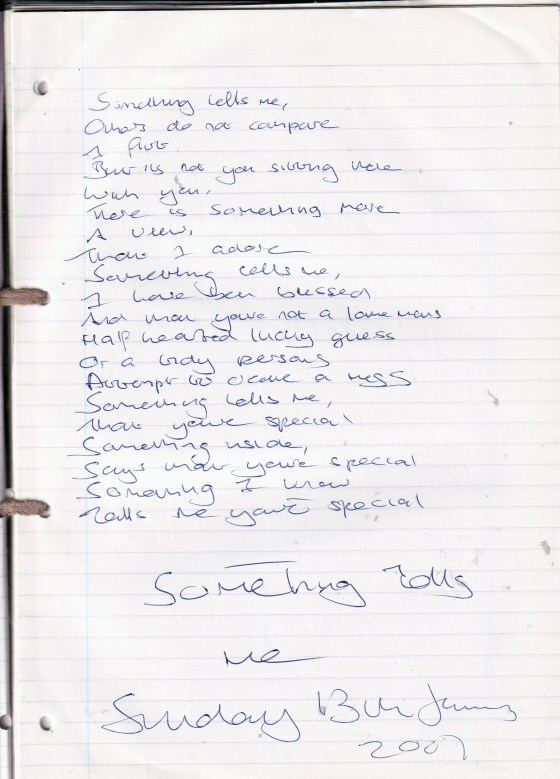 Something tells me,
Others do not compare
A
But its not you sitting here
With you,
There is something more
A view,
That I adore
Something tells me,
I have been blessed
And that youre not a lame mans
Half hearted lucky guess
Or a tidy persons
Attempt to create a mess
Something tells me,
That youre special
Something inside,
Says that youre special
Something I know
Tells me youre special
Something Tells
me
Sunday 13th January
2007